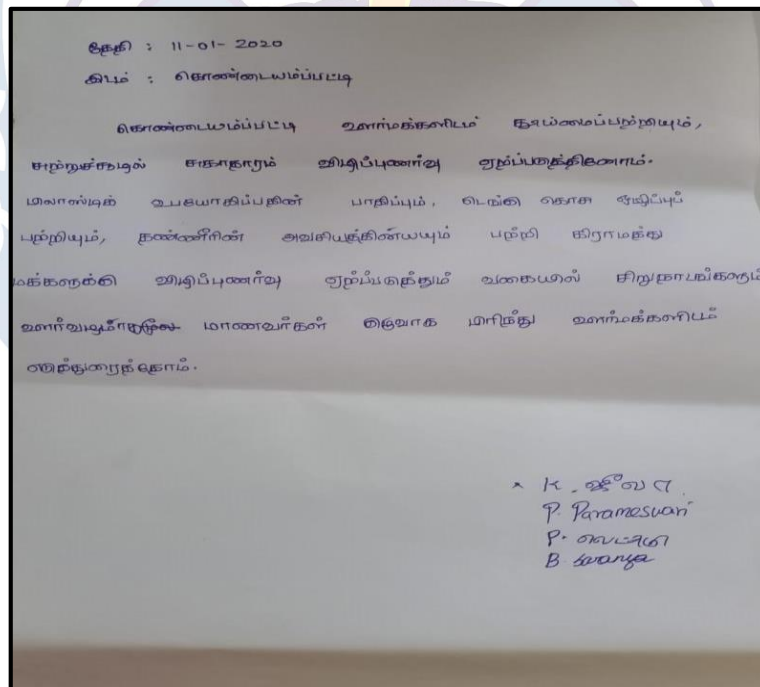 தேதி : 11-01-2020
இடம் : கொண்டையம்பட்டி
கொண்டையம்ப்பட்டி ஊர்மக்களிடம் தூய்மைப்பற்றியும்,
சுற்றுச்சூழல் சுகாதாரம் விழிப்புணர்வு ஏற்ப்படுத்தினோம்.
பிலாஸ்டிக் உபயோகிப்பதின் பாதிப்பும், டெங்கு கொசு ஒழிப்புப்
பற்றியும், தண்ணீரின் அவசியத்தின்யயும் பற்றி கிராமத்து
மக்களுக்கு விழிப்புணர்வு ஏற்ப்படுத்தும் வகையில் சிறுநாடங்களும்
ஊர்வழியாக மாணவர்கள் குழுவாக பிரிந்து ஊர்மக்களிடம்
எடுத்துரைத்தோம்.
K. ஜீவா
P. Parameswari
P. லெட்சுமி
B. Saranya